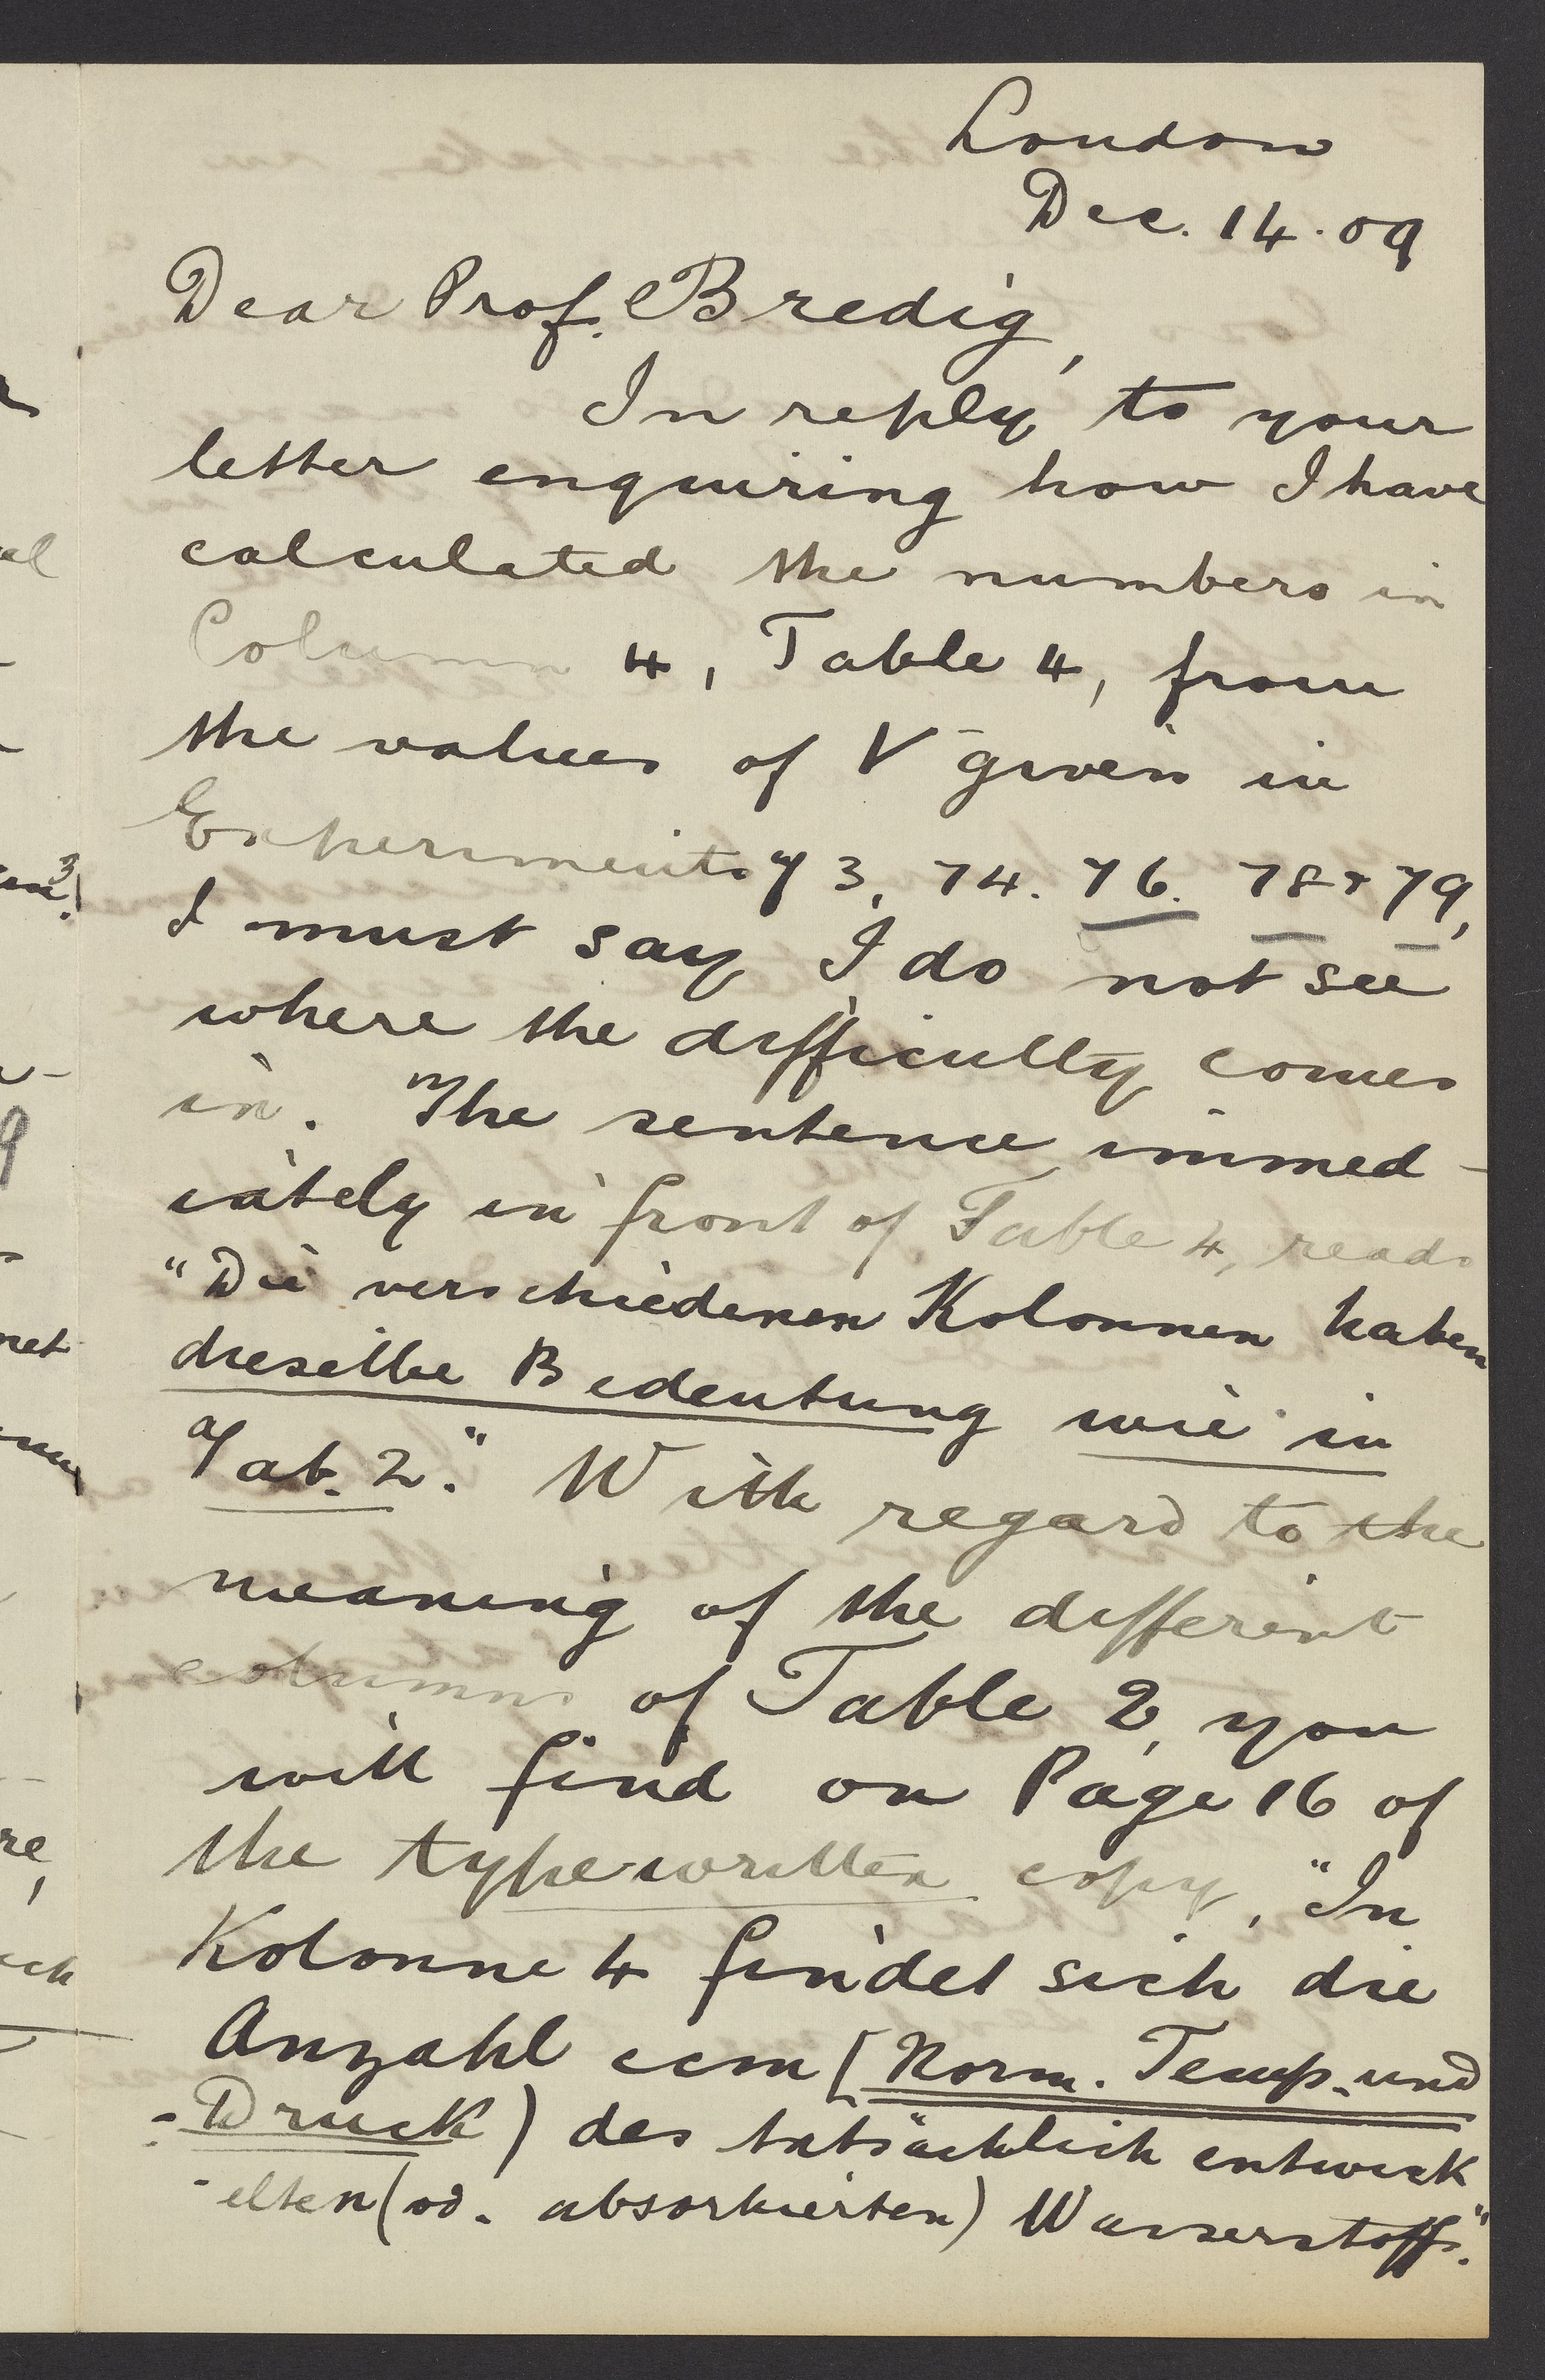 London
Dec. 14. 09
Dear Prof. Bredig,
In reply to your
letter enquiring how I have
calculated the numbers in
Column 4, Table 4, from
the values of V given in
Experiments 73, 74. 76. 78 + 79,
I must say I do not see
where the difficulty comes
in. The sentence immed-
iately in front of Table 4, reads
"Die verschiedenen Kolonnen haben
dieselbe Bedeutung wie in
Tab. 2." With regard to the
meaning of the different
columns of Table 2, you
will find on Page 16 of
the typewritten copy, "In
Kolonne 4 findet sich die
Anzahl ccm [Norm. Temp. und
-Druck) des tatsächlich entwick
-elten (od. absorbierten) Wasserstoffs."